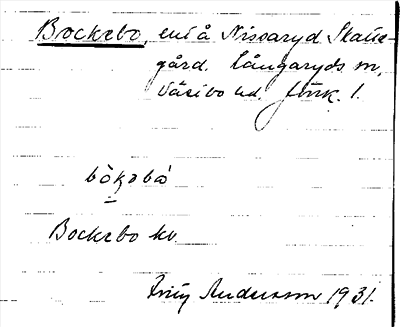 Bockebo, enl å Nissaryd Skatte-
gård. Långaryds sn,
Västbo hd. Jönk. l.
bòkəbó
Bockebo kv.
Andersson 1931.